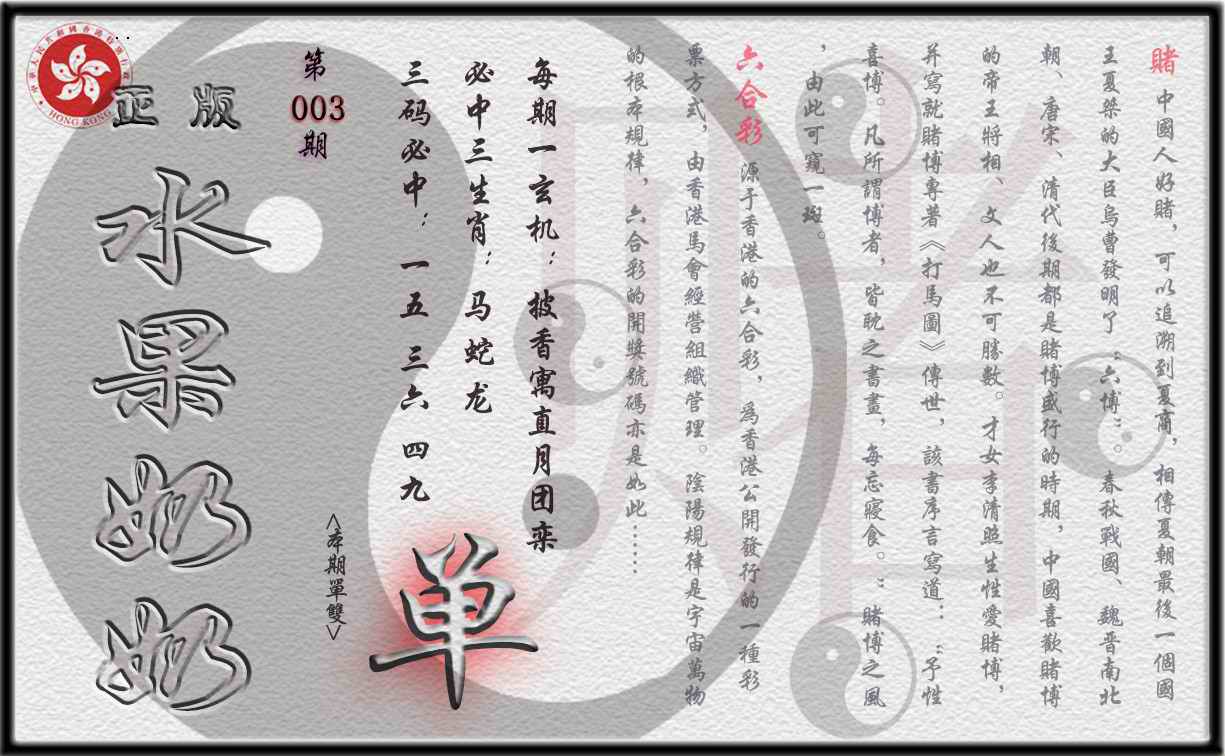 賭 中國人好賭，可以追溯到夏商，相傳夏朝最後一個國
王夏桀的大臣烏曹發明了“六博”。春秋戰國、魏晋南北
朝、唐宋、清代後期都是賭博盛行的時期，中國喜歡賭博
的帝王將相、文人也不可勝數。才女李清照生性愛賭博，
并寫就賭博專著《打馬圖》傳世，該書序言寫道：“予性
喜博。凡所謂博者，皆耽之書晝，每忘寢食。”賭博之風
，由此可窺一斑。
六合彩 源于香港的六合彩，爲香港公開發行的一種彩
票方式，由香港馬會經營組織管理。陰陽規律是宇宙萬物
的根本規律，六合彩的開獎號碼亦是如此……
每期一玄机：披香寓直月团栾
必中三生肖：马蛇龙
三码必中：一五 三六 四九
单
<本期單雙>
第
003
期
正版
水果奶奶
HONG KONG